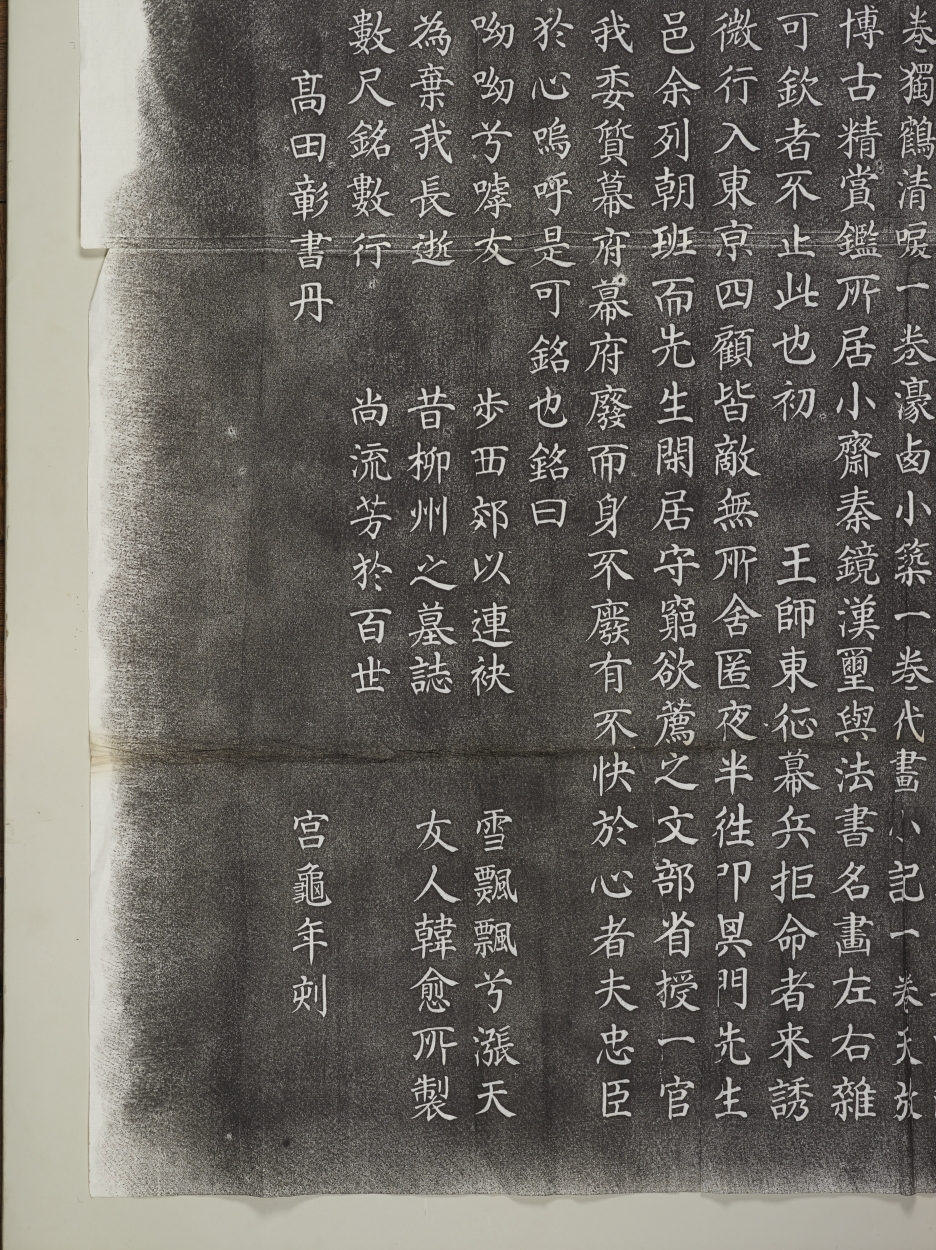 卷獨鶴清唳一卷濠鹵小築一卷代畫小記一卷天放
博古精賞鑑所居小齋秦鏡漢璽與法書名畫左右雜
可欽者不止此也初　王師東征幕兵拒命者来誘
微行入東亰四顧皆敵無所舍匿夜半徃叩其門先生
邑余列朝班而先生閑居守窮欲薦之文部省授一官
我委質幕府幕府廢而身不廢有不快於心者夫忠臣
於心嗚呼是可銘也銘曰
呦呦兮嘑友　歩西郊以連袂　雪飄飄兮漲天
為棄我長逝　昔柳州之墓誌　友人韓愈所製
數尺銘數行　尚流芳於百世
髙田彰書丹　宮龜年刻